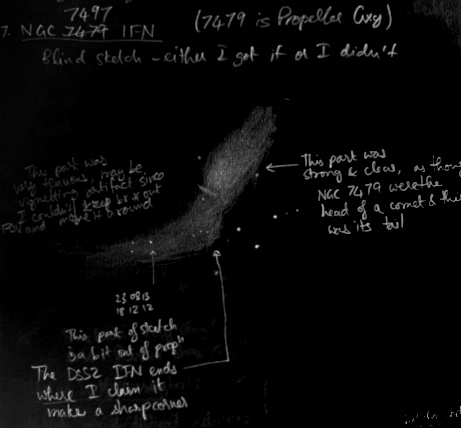 7497
7. NGC 7479 IFN (7479 is Propeller Gxy)
Blind sketch - either I got it or I didn't
This part was
very tenuous, may be
vignetting artifact since
I couldn't keep out
FOV and move it around
This part was
strong & clear, as though
NGC 7479 were the
head of a comet & this
was its tail
23 08 13
18 12 12
This part of sketch
is a bit out of prop"
The DSS2 IFN ends
where I claim it
make a sharp corner